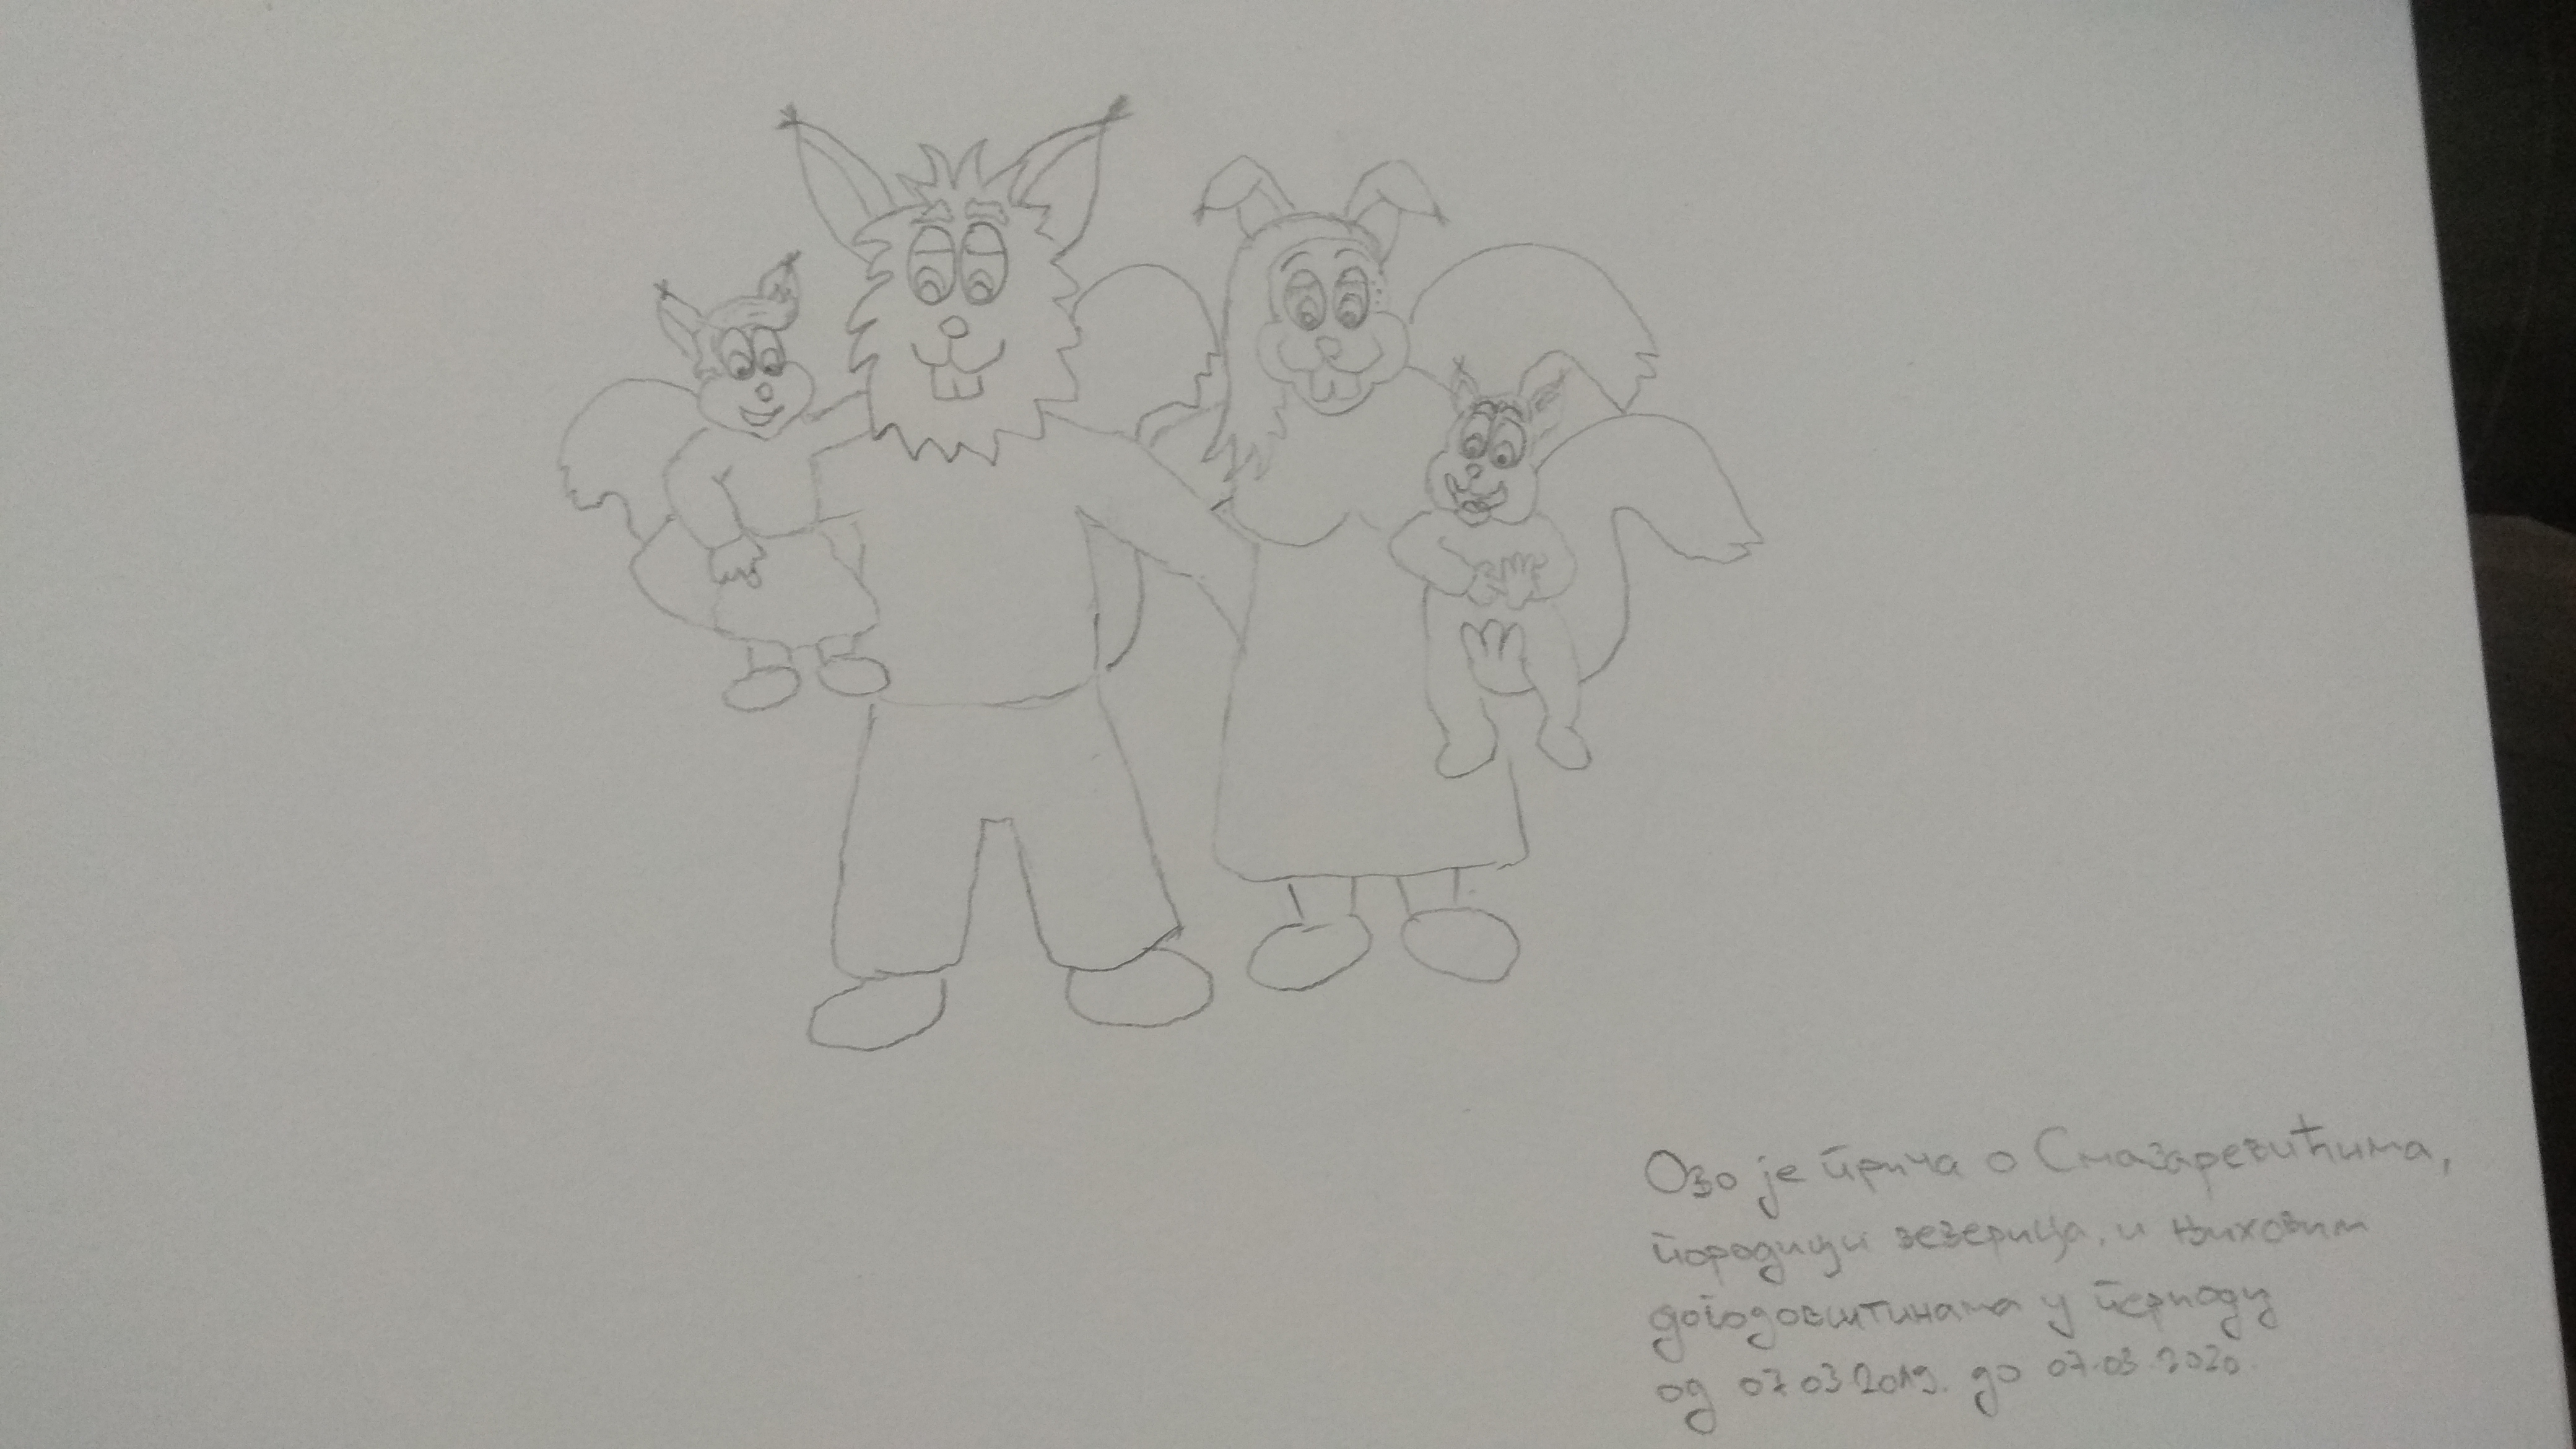 Озо је прича о Смазаревићима,
породици зезерица, и њиховим
догодовштинама у периоду
од 07.03.2019. до 07.03.2020.